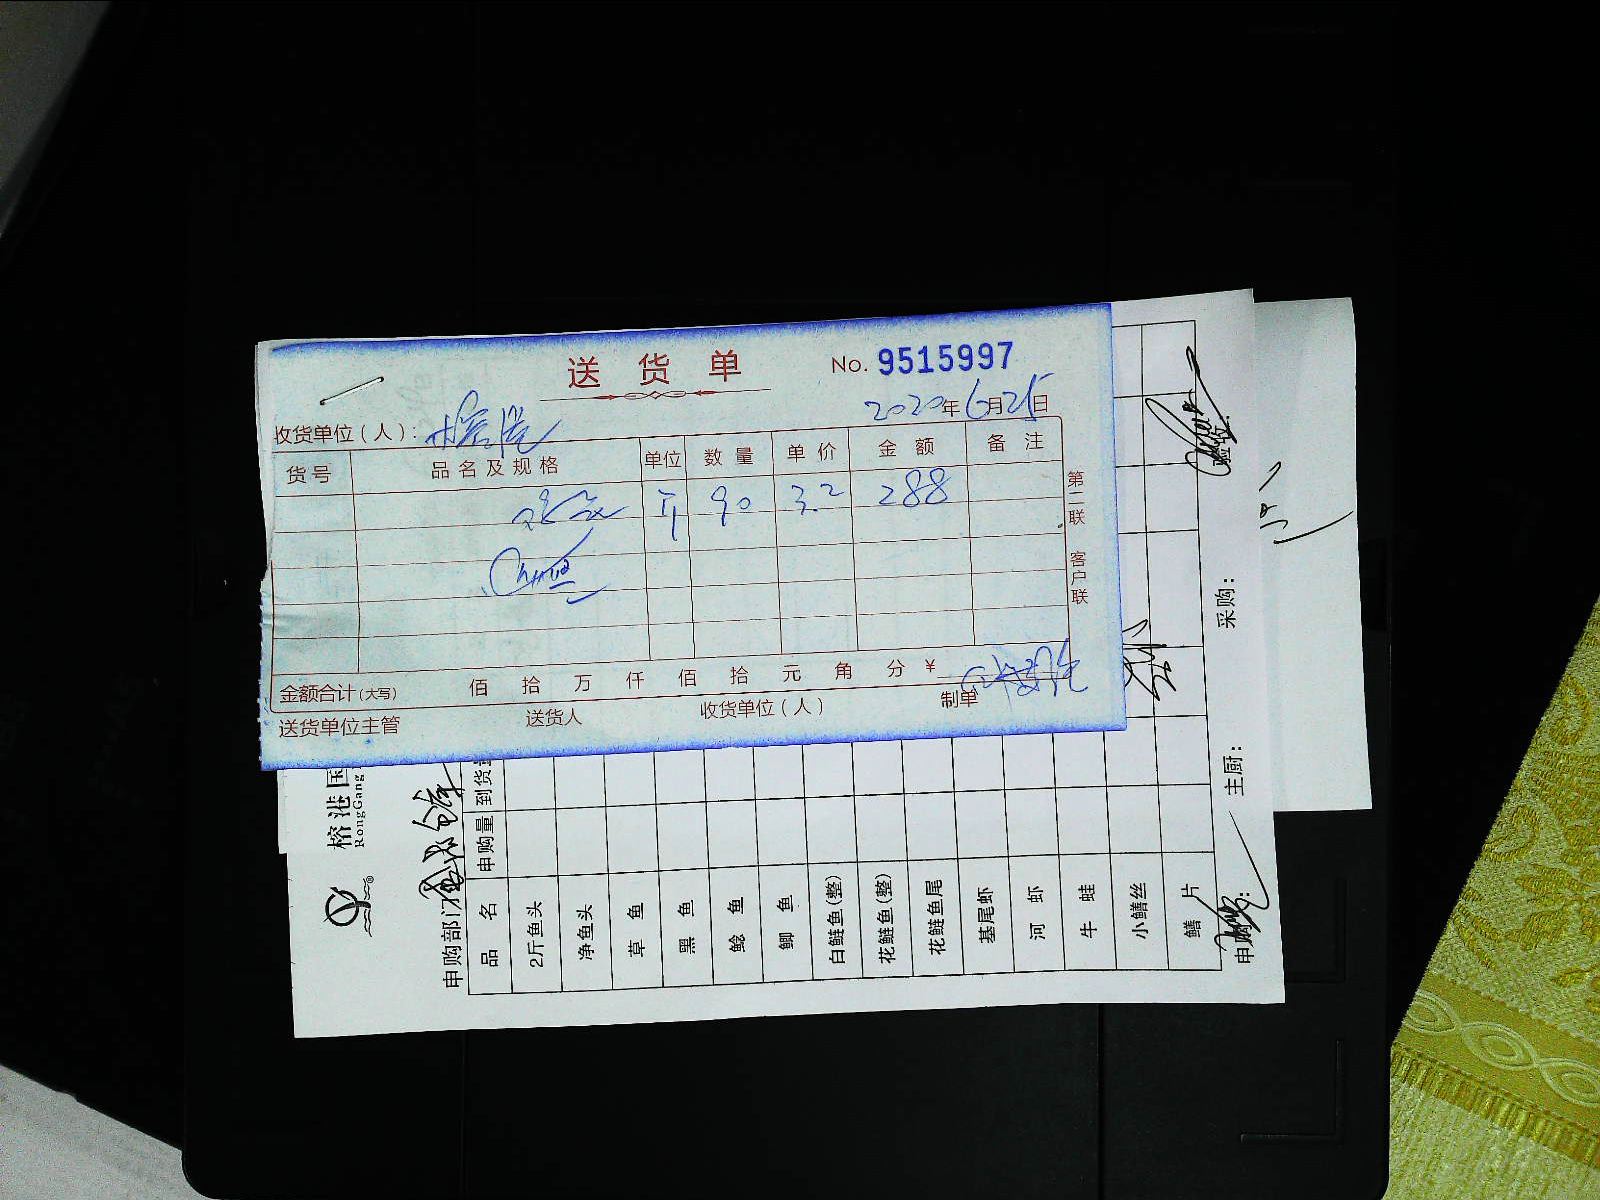 送货单 No. 9515997
2020年6月25日
收货单位(人): 榕港
货号 品名及规格 单位 数量 单价 金额 备注
斤 90 3.2 288
第二联 客户联
金额合计(大写) 佰 拾 万 仟 佰 拾 元 角 分 ¥
送货单位主管 送货人 收货单位(人) 制单
榕港国
RongGang
申购部门
品名 申购量 到货
2斤鱼头
净鱼头
草鱼
黑鱼
鲶鱼
鲫鱼
白鲢鱼(整)
花鲢鱼(整)
花鲢鱼尾
基尾虾
河虾
牛蛙
小鳝丝
鳝片
申购: 主厨: 采购: 验收: